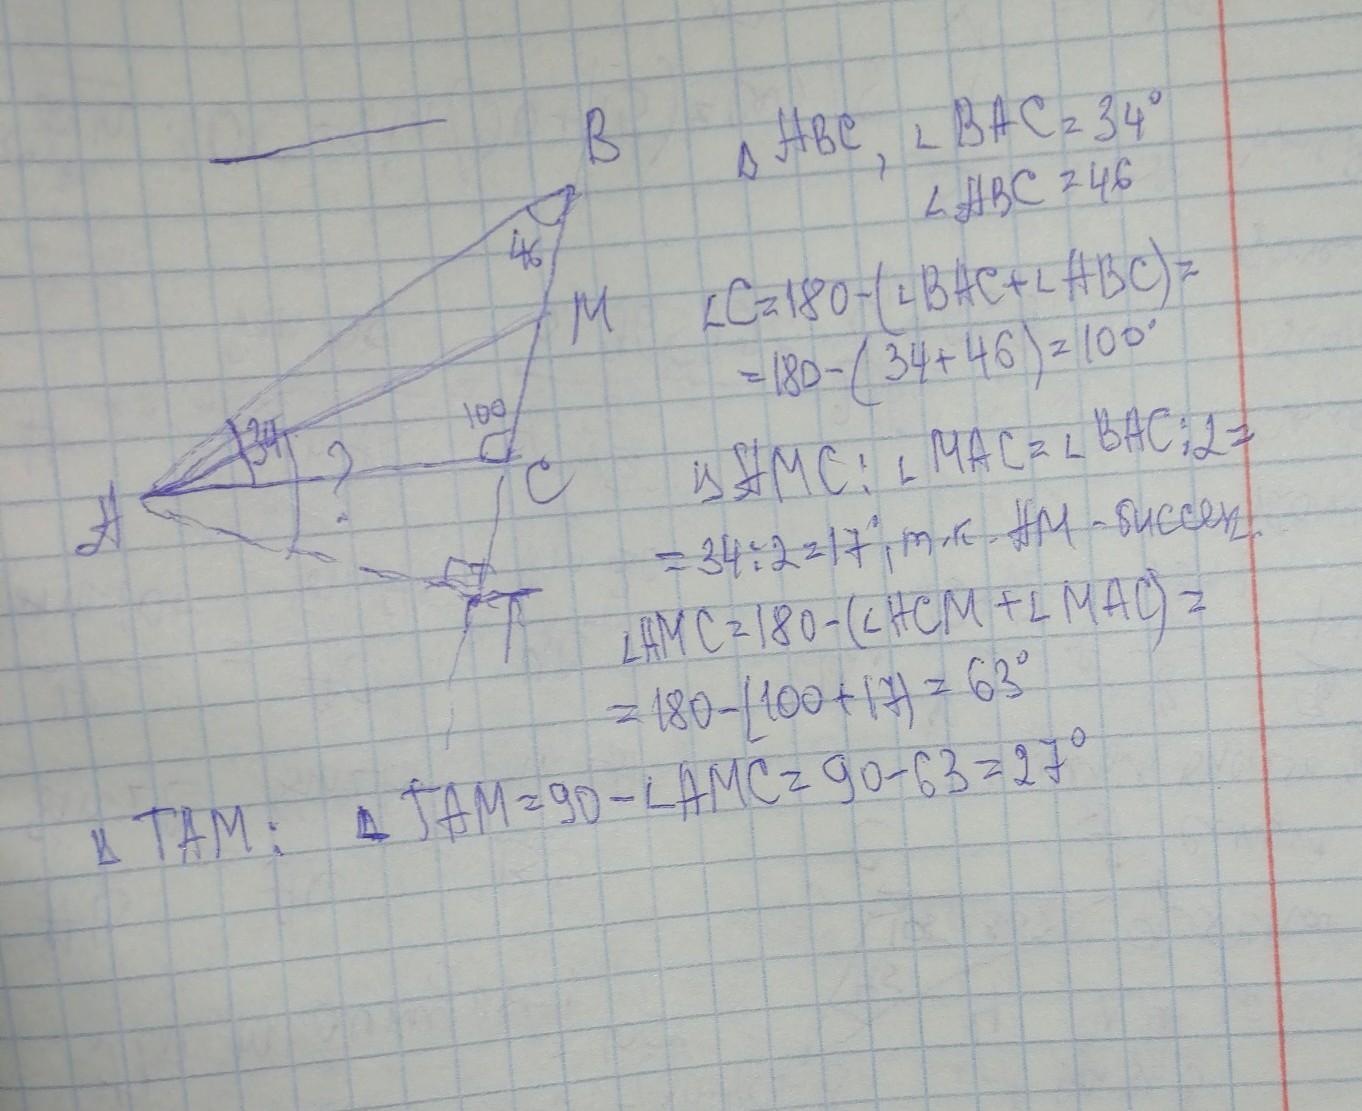 B
46
M
34
?
100
C
A
T
Δ ABC, ∠BAC=34°
∠ABC=46
∠C=180-(∠BAC+∠ABC)=
=180-(34+46)=100°
Δ AMC: ∠MAC=∠BAC:2=
=34:2=17°, т.к. AM-биссек.
∠AMC=180-(∠ACM+∠MAC)=
=180-(100+17)=63°
Δ TAM: ∠TAM=90-∠AMC=90-63=27°